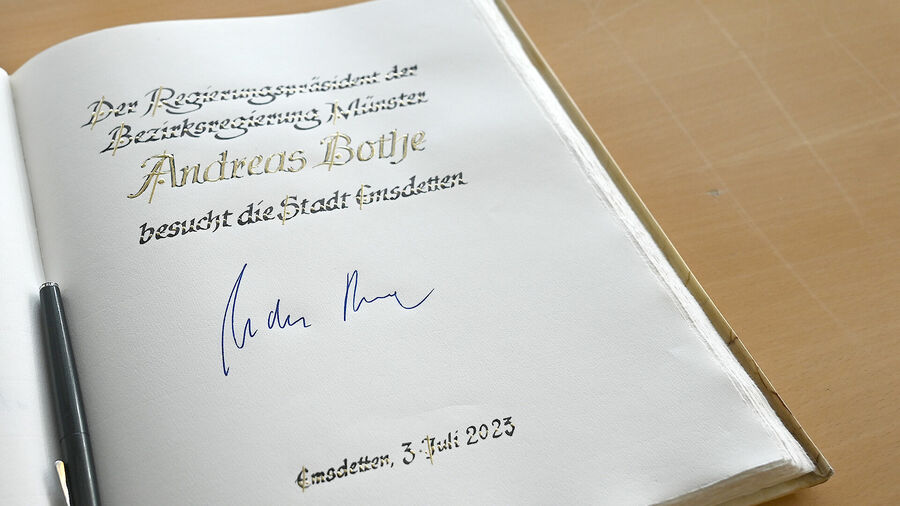 Der Regierungspräsident der
Bezirksregierung Münster
Andreas Bothe
besucht die Stadt Emsdetten
Emsdetten, 3. Juli 2023